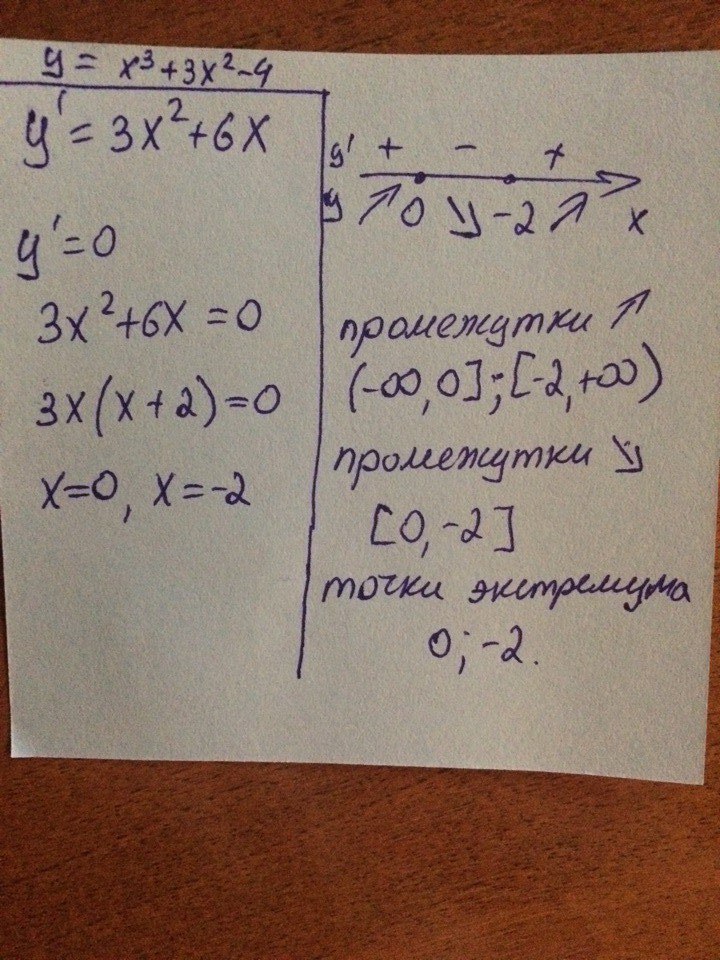 y = x³+3x²-4
y' = 3x²+6x
y'=0
3x²+6x=0
3x(x+2)=0
x=0, x=-2
y' + - +
y ↗ 0 ↘ -2 ↗ x
промежутки ↗
(-∞,0];[-2,+∞)
промежутки ↘
[0,-2]
точки экстремума
0;-2.